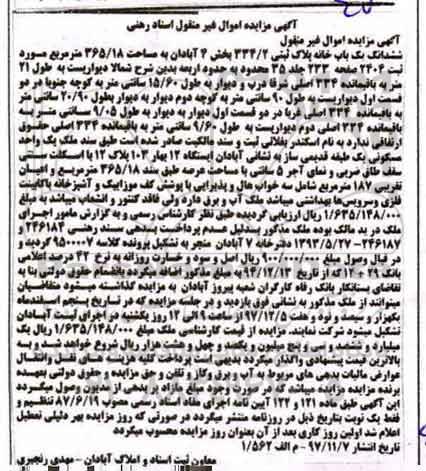 آگهی مزایده اموال غیر منقول اسناد رهنی
آگهی مزایده اموال غیر منقول
ششدانگ یک باب خانه پلاک ثبتی ۳۳۴/۲ بخش ۴ آبادان به مساحت ۳۶۵/۱۸ مترمربع مورد
ثبت ۲۴۰۶ صفحه ۲۳۳ جلد ۳۵ محدود به حدود اربعه بدین شرح شمالا دیواریست به طول ۲۱
متر به باقیمانده ۳۳۴ اصلی شرقا درب و دیوار به طول ۱۵/۶۰ سانتی متر به کوچه جنوبا در دو
قسمت اول دیواریست به طول ۹۰ سانتی متر به کوچه دوم دیوار به دیوار بطول ۲۰/۹۰ سانتی متر
به باقیمانده ۳۳۴ اصلی غربا در دو قسمت اول دیوار به دیوار به طول ۹/۰۵ سانتی متر به
باقیمانده ۳۳۴ اصلی دوم دیواریست به طول ۹/۶۰ سانتی متر به باقیمانده ۳۳۴ اصلی حقوق
ارتفاقی ندارد به نام اسکندر بغلانی ثبت و سند مالکیت صادر شده است طبق سند ملک یک واحد
مسکونی یک طبقه قدیمی ساز به نشانی آبادان ایستگاه ۱۲ بهار ۱۰۳ پلاک ۱۲ با اسکلت سنتی
سقف طاق ضربی و نمای آجر ۵ سانتی با مساحت عرصه طبق سند ۳۶۵/۱۸ مترمربع و اعیان
تقریبی ۱۸۷ مترمربع شامل سه خواب هال و پذیرایی با پوشش کف موزاییک و آشپزخانه باکابینت
فلزی وسرویسها بهداشتی میباشد ملک آب و برق دارد ولی فاقد کنتور و انشعاب میباشد به مبلغ
۱/۶۳۵/۱۴۸/۰۰۰ ریال ارزیابی گردیده طبق نظر کارشناس رسمی و به گزارش مامور اجرای
ملک در ید مالک بوده ملک مذکور بدلیل عدم پرداخت بدهی سند رهنی ۲۴۶۱۸۴ و
۲۴۶۱۸۷- ۱۳۹۳/۵/۲۷ دفترخانه ۷ آبادان منجر به تشکیل پرونده کلاسه ۹۵۰۰۰۰۷ گردید و
در قبال وصول مبلغ ۹۰۰/۰۰۰/۰۰۰ ریال اصل و سود و خسارت روزانه به نرخ ۴۲ درصد اعلامی
بانک ۲۹-۱۴ که از تاریخ ۹۴/۱۲/۱۳ به مبلغ مذکور اضافه میگردد بانضمام حقوق دولتی بنا به
تقاضای بستانکار بانک رفاه کارگران شعبه پیروز آبادان به مزایده گذاشته میشود متقاضیان
میتوانند از ملک مذکور به نشانی فوق بازدید و در جلسه مزایده که در تاریخ پنجم اسفندماه
یکهزار و سیصد و نود و هفت ۹۷/۱۲/۵ از ساعت ۹ الی ۱۲ روز یکشنبه در اجرای ثبت آبادان
تشکیل میشود شرکت نمایند. مزایده از قیمت کارشناسی ملک مبلغ ۱/۶۳۵/۱۴۸/۰۰۰ ریال یک
میلیارد و ششصد و سی و پنج میلیون و یکصد و چهل و هشت هزار ریال شروع خواهد شد و به
بالاترین قیمت پیشنهادی واگذار میگردد بدیهی است پرداخت کلیه هزینه های نقل و انتقال
عوارض مالیات بدهی های مربوط به آب و برق وگاز و تلفن و حق مزایده و حقوق دولتی بعهده
برنده مزایده مزایده میباشد که در صورت وجود مبلغ مازاد بر بدهی از مدیون وصول میگردد
این آگهی طبق ماده ۱۲۱ و ۱۲۲ آیین نامه اجرای مفاد اسناد رسمی مصوب ۸۷/۶/۱۹ تنظیم و
فقط یک نوبت بتاریخ ذیل در روزنامه منتشر میگردد در صورتی که روز مزایده بهر دلیلی تعطیل
اعلام شد اولین روز کاری بعد از آن بعنوان روز مزایده محسوب میگردد
تاریخ انتشار ۹۷/۱۱/۷- م الف ۱/۵۶۲
معاون ثبت اسناد و املاک آبادان - مهدی رنجبری